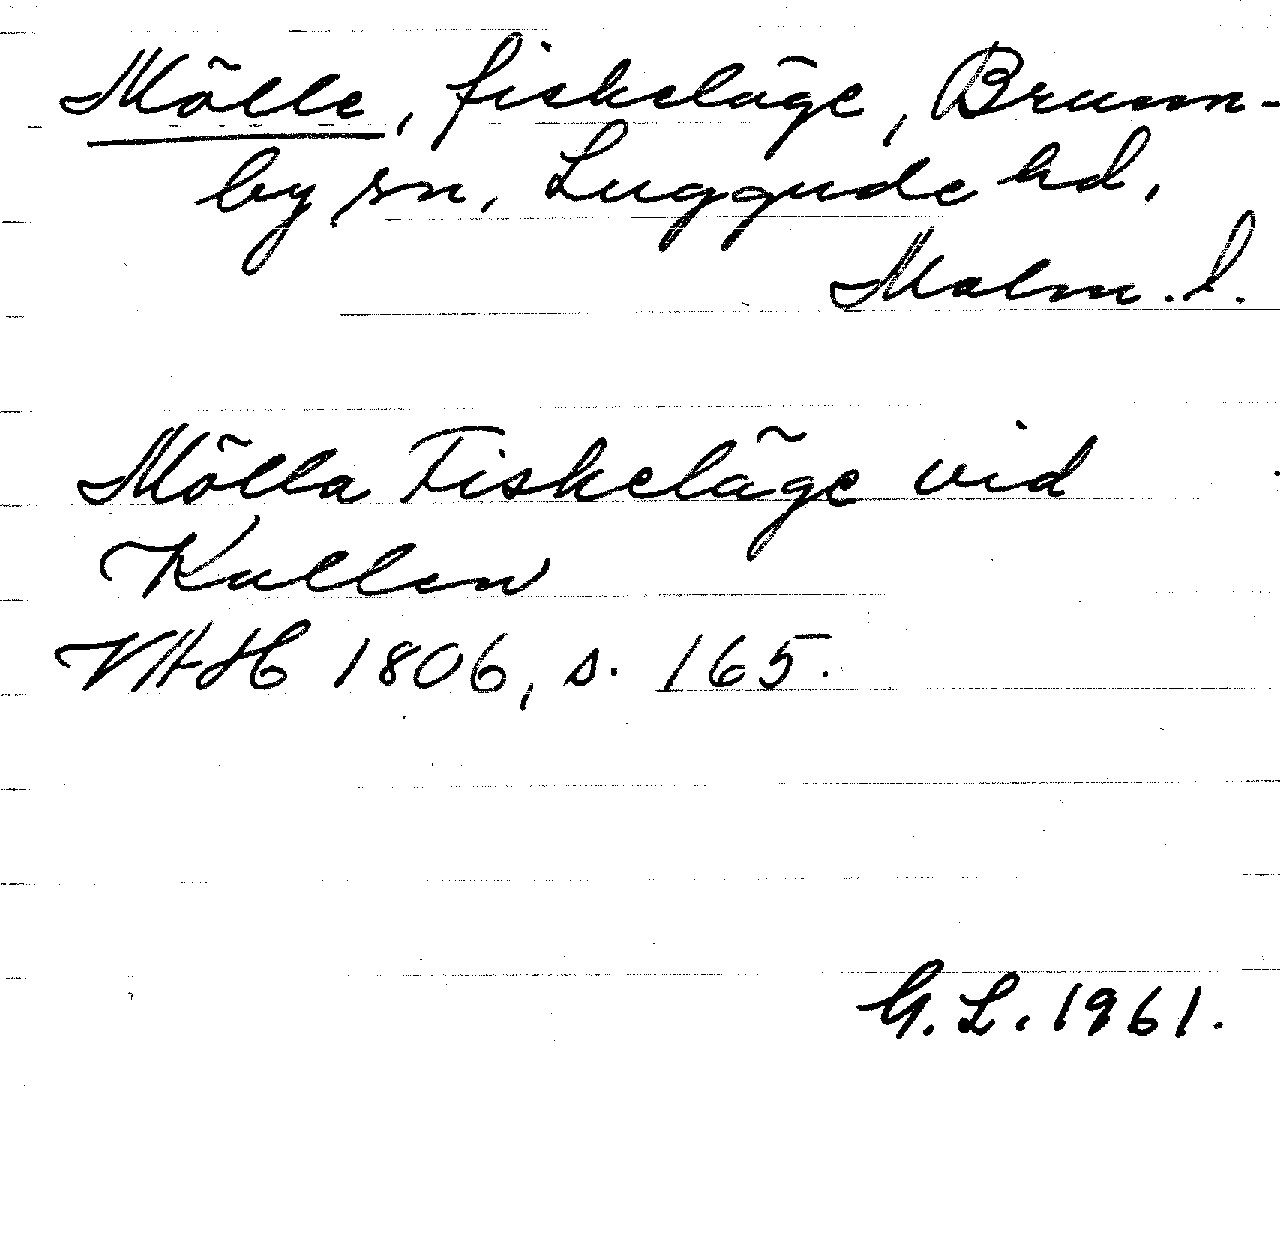 Mölle, fiskeläge, Brunn-
by sn, Luggude hd,
Malm. l.
Mölla Fiskeläge vid
Kullen
VAH 1806, s. 165.
G. L. 1961.